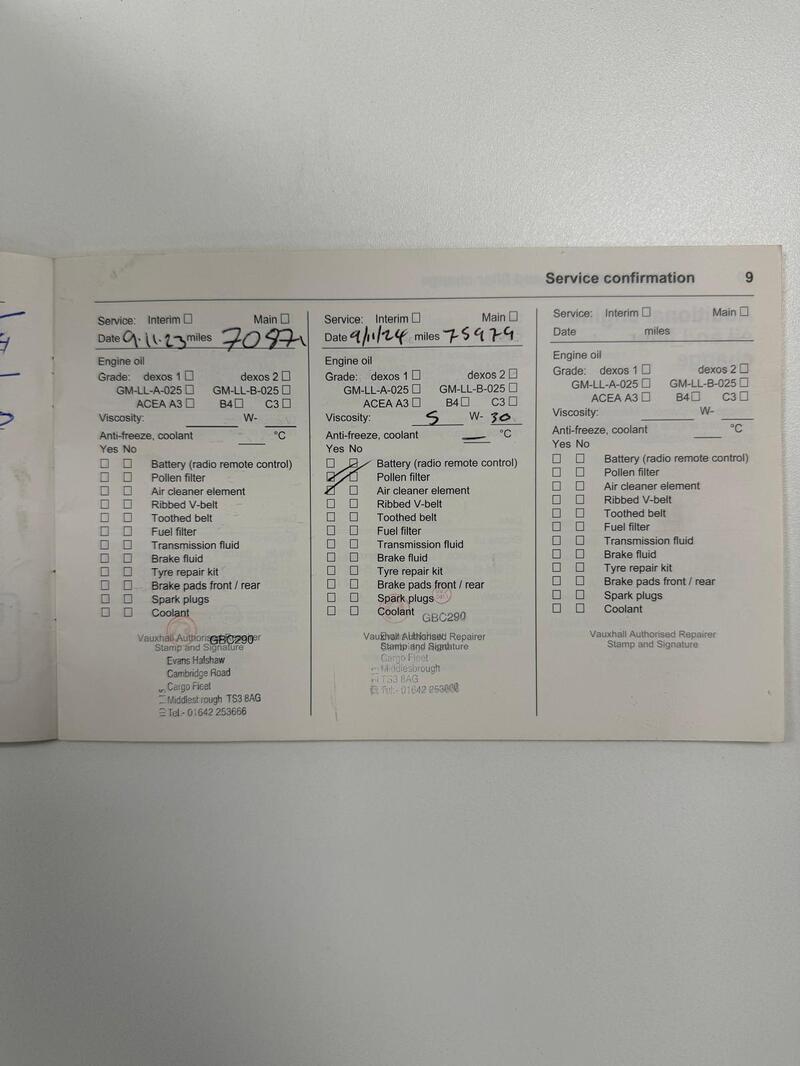 Service confirmation 9
Service: Interim Main
Date 9.11.23 miles 70971
Engine oil
Grade: dexos 1 dexos 2
GM-LL-A-025 GM-LL-B-025
ACEA A3 B4 C3
Viscosity: W-
Anti-freeze, coolant °C
Yes No
Battery (radio remote control)
Pollen filter
Air cleaner element
Ribbed V-belt
Toothed belt
Fuel filter
Transmission fluid
Brake fluid
Tyre repair kit
Brake pads front / rear
Spark plugs
Coolant
Vauxhall Authorised Repairer
GBC290
Stamp and Signature
Evans Halshaw
Cambridge Road
Cargo Fleet
Middlesbrough TS3 8AG
Tel:- 01642 253666
Service: Interim Main
Date 9/11/24 miles 75979
Engine oil
Grade: dexos 1 dexos 2
GM-LL-A-025 GM-LL-B-025
ACEA A3 B4 C3
Viscosity: 5 W- 30
Anti-freeze, coolant — °C
Yes No
Battery (radio remote control)
Pollen filter
Air cleaner element
Ribbed V-belt
Toothed belt
Fuel filter
Transmission fluid
Brake fluid
Tyre repair kit
Brake pads front / rear
Spark plugs
Coolant
GBC290
Vauxhall Authorised Repairer
Stamp and Signature
Cargo Fleet
Middlesbrough
TS3 8AG
Tel:- 01642
Service: Interim Main
Date miles
Engine oil
Grade: dexos 1 dexos 2
GM-LL-A-025 GM-LL-B-025
ACEA A3 B4 C3
Viscosity: W-
Anti-freeze, coolant °C
Yes No
Battery (radio remote control)
Pollen filter
Air cleaner element
Ribbed V-belt
Toothed belt
Fuel filter
Transmission fluid
Brake fluid
Tyre repair kit
Brake pads front / rear
Spark plugs
Coolant
Vauxhall Authorised Repairer
Stamp and Signature